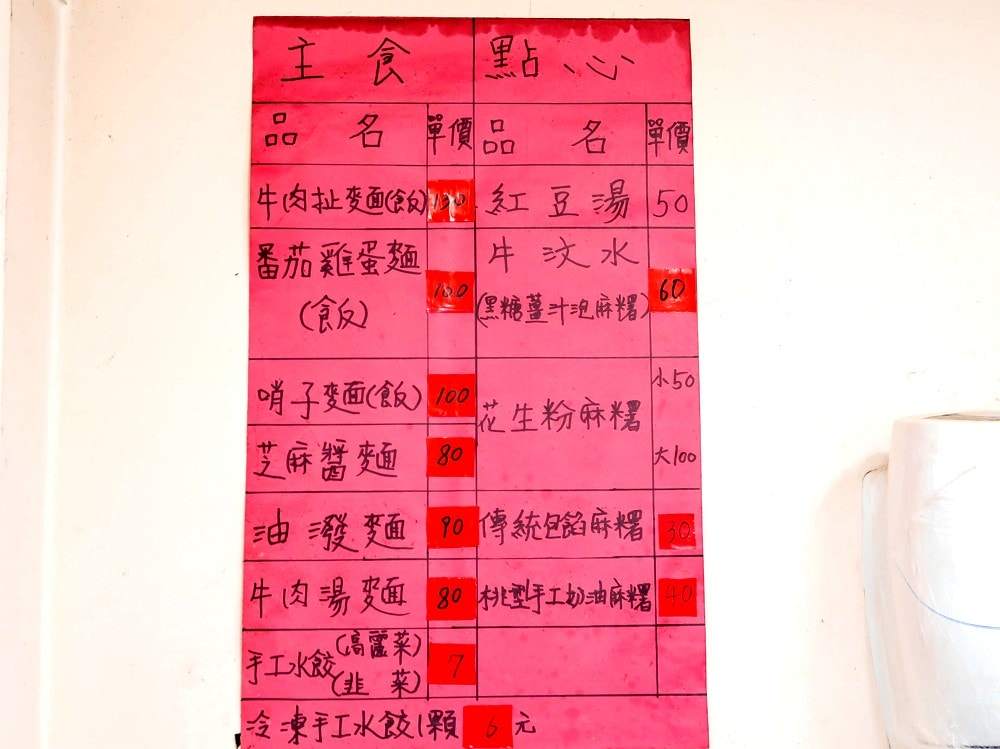 主食 點心
品名 單價 品名 單價
牛肉扯麥面(飯) 130 紅豆湯 50
番茄雞蛋麵 牛汶水
(飯) 100 (黑糖薑汁泡麻糬) 60
哨子麥面(飯) 100 花生粉麻糬 小50
芝麻醬麵 80 大100
油潑麵 90 傳統包餡麻糬 30
牛肉湯麵 80 桃型手工奶油麻糬 40
手工水餃(高麗菜) 7
(韭菜)
冷凍手工水餃1顆 6 元